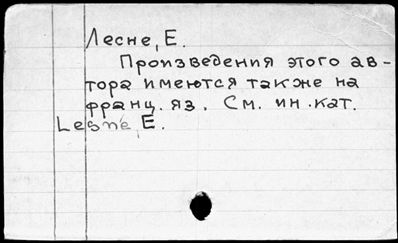 Лесне, Е.
Произведения этого ав-
тора имеются также на
франц. яз. См. ин.кат.
Lesné, E.